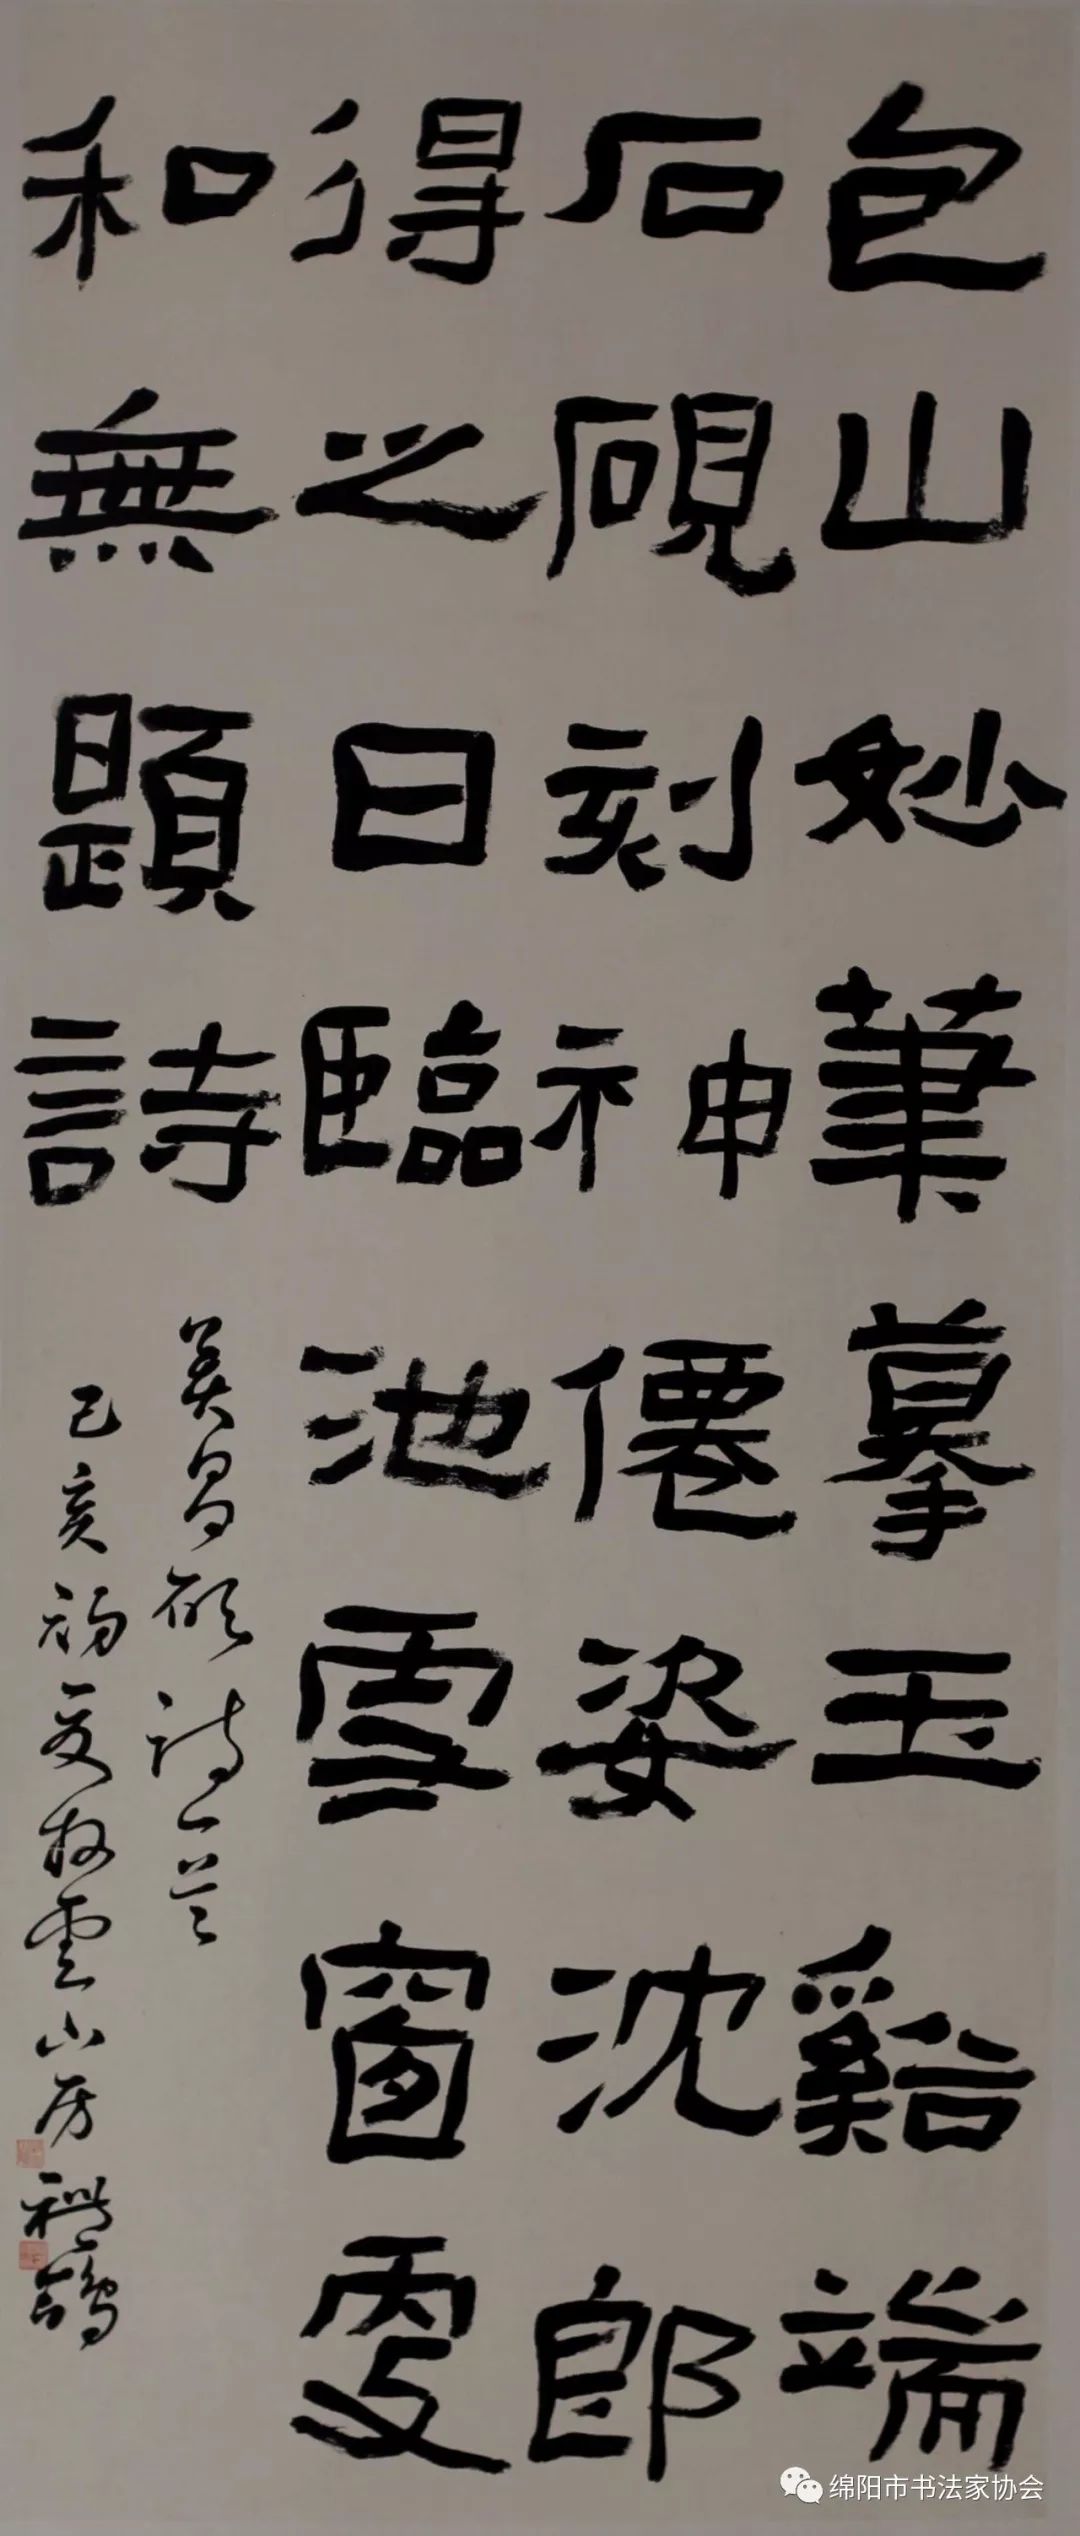 包山妙筆摹玉谿端
石硯刻神僊姿沈郎
得之日臨池雪窗更
和無題詩
吴昌碩詩一首
己亥初夏於雲山房
绵阳市书法家协会